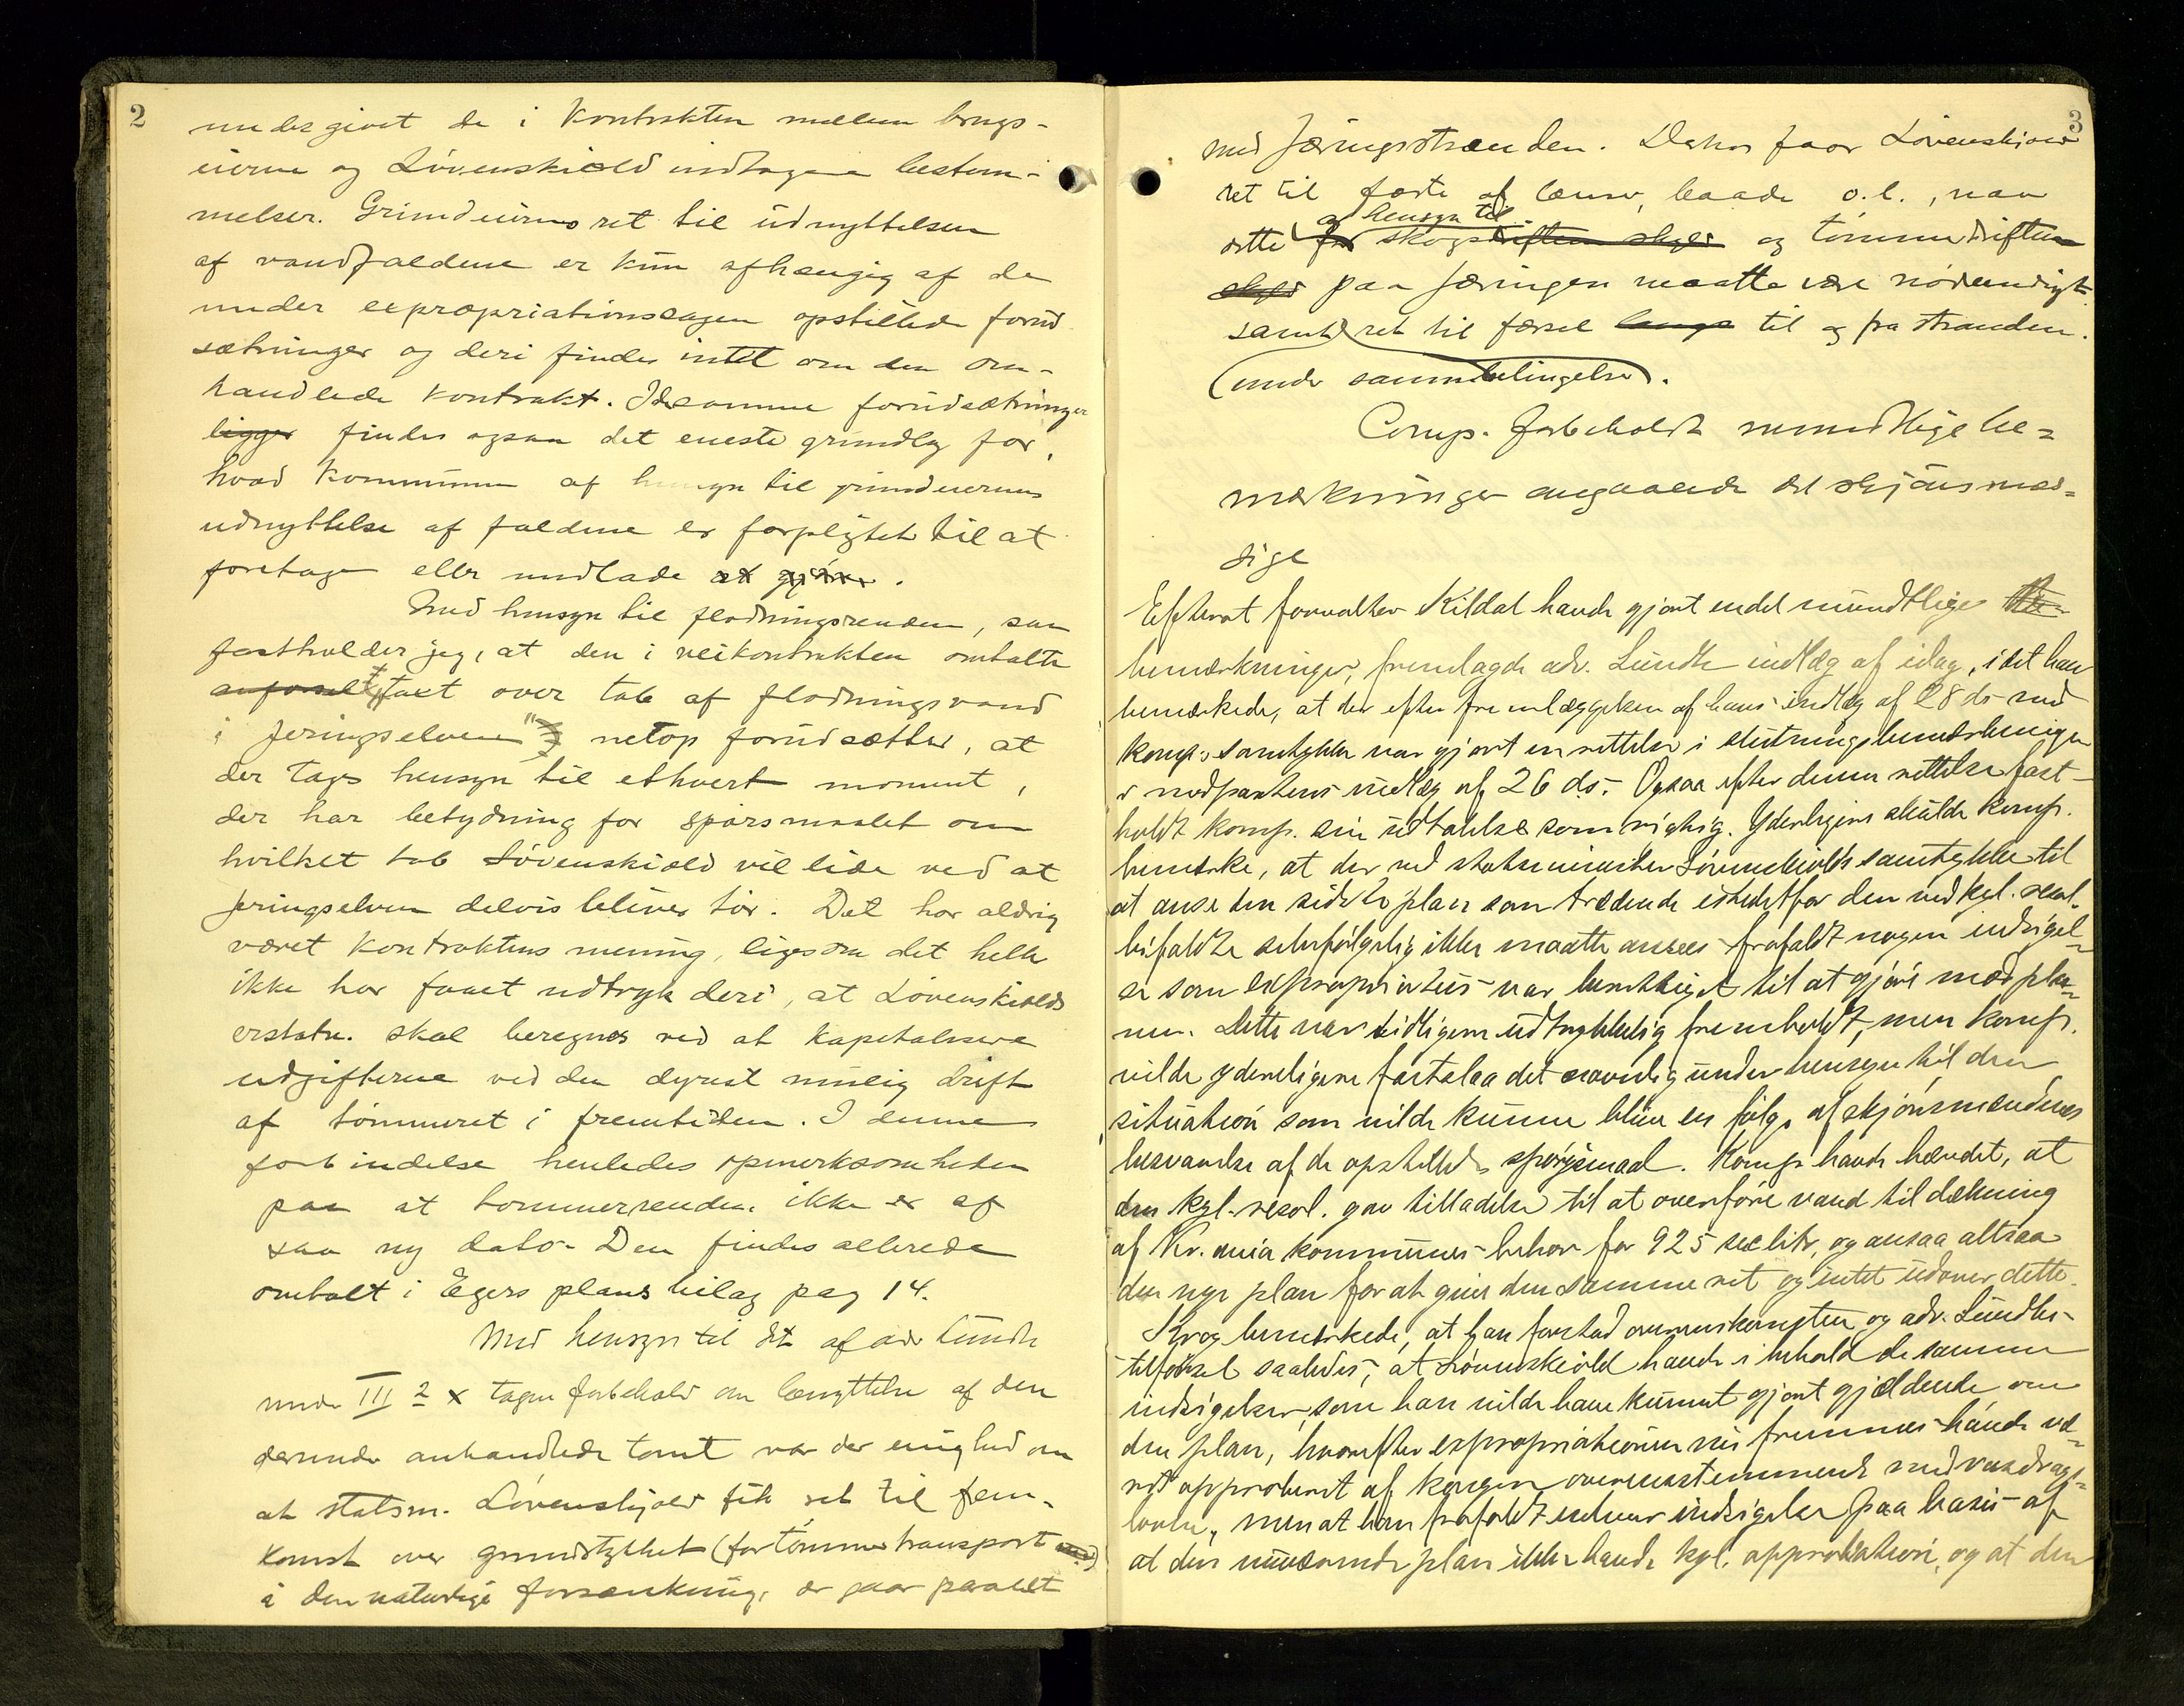 2
undergivet de i Kontrakten mellem brugs-
eierne og Lövenskiold indtagne bestem-
melser. Grundeiernes ret til udnyttelsen
af vandfaldene er kun afhængig af de
under expropriationssagen opstillede forud
sætninger og deri findes intet om den om-
handlede Kontrakt. I de samme forudsætninger
ligger findes ogsaa det eneste grundlag for,
hvad Kommunen af hensyn til grundeiernes
udnyttelse af faldene er forpligtet til at
foretage eller undlade at gjøre.
Med hensyn til flødningsrenden, saa
fastholder jeg, at den i veikontrakten omtalte
taxt over tab af flødningsvand
i Jeringselven" netop forudsætter, at
der tages hensyn til ethvert moment,
der har betydning for spörsmaalet om
hvilket tab Lövenskiold vil lide ved at
Jeringselven delvis bliver tör. Det har aldrig
været Kontraktens mening, ligesom det heller
ikke har faaet udtryk deri, at Lövenskiolds
erstatn. skal beregnes ved at kapitalisere
udgifterne ved den dyrest mulig drift
af tömmeret i fremtiden. I denne
forbindelse henledes opmerksomheden
paa at tommerrenden ikke er af
saa ny dato. Den findes allerede
omtalt i Egers plans bilag pag 14.
Med hensyn til det af adv Lundh
under III 2 x tagne forbehold om benyttelse af den
derunder omhandlede tomt var der enighed om
at statsm. Lövenskjold fik ret til frem-
komst over grundstykket (for tömmertransport)
i den naturlige forsænkning, der gaar paralelt
3
med Jæringsstranden. Derhos faar Lövenskiold
ret til fæste af lænser, baade o.l., naar
af hensyn til
dette for skogsdriften skyld og tömmerdriften
skyld paa Jæringen maatte være nödvendigt.
samt ret til færsel langs til og fra stranden.
(under samme betingelser).
Comp. forbeholdt mundtlige be=
mærkninger angaaende det skjönsmæs=
sige
Efterat forvalter Kildal havde gjort endel mundtlige
bemærkninger, fremlagde adv. Lundh indlæg af idag, idet han
bemærkede, at der efter fremlæggelsen af hans indlæg af 28 ds med
komp.s samtykke var gjort en rettelse i slutningsbemærkningen
i modpartens indlæg af 26 ds. Ogsaa efter denne rettelse fast-
holdt komp. sin udtalelse som rigtig. Yderligere skulde komp.
bemærke, at der ved statsminister Lövenskiolds samtykke til
at anse den sidste plan som trædende istedetfor den ved kgl. resol.
bifaldte selvfölgelig ikke maatte ansees frafaldt nogen indsigel=
se som expropriatus var berettiget til at gjöre mod pla=
nen. Dette var tidligere udtrykkelig fremholdt, men komp.
vilde yderligere fastslaa det navnlig under hensyn til den
situation som vilde kunne blive en fölge af skjönsmændenes
besvarelse af de opstillede spörgsmaal. Komp. havde hævdet, at
den kgl. resol. gav tilladelse til at overföre vand til dækning
af Kr.ania kommunes behov for 925 sec liter, og ansaa altsaa
den nye plan for at give den samme ret og intet udover dette.
Krog bemærkede, at han forstod overenskomsten og adv. Lundhs
tilförsel saaledes, at Lövenskiold havde i behold de samme
indsigelser, som han vilde have kunnet gjort gjældende om
den plan, hvorefter expropriationen nu fremmes havde væ=
ret approberet af kongen overensstemmende med vasdrags=
loven, men at han frafaldt enhver indsigelse paa basis af
at den nuværende plan ikke havde kgl. approbation, og at den